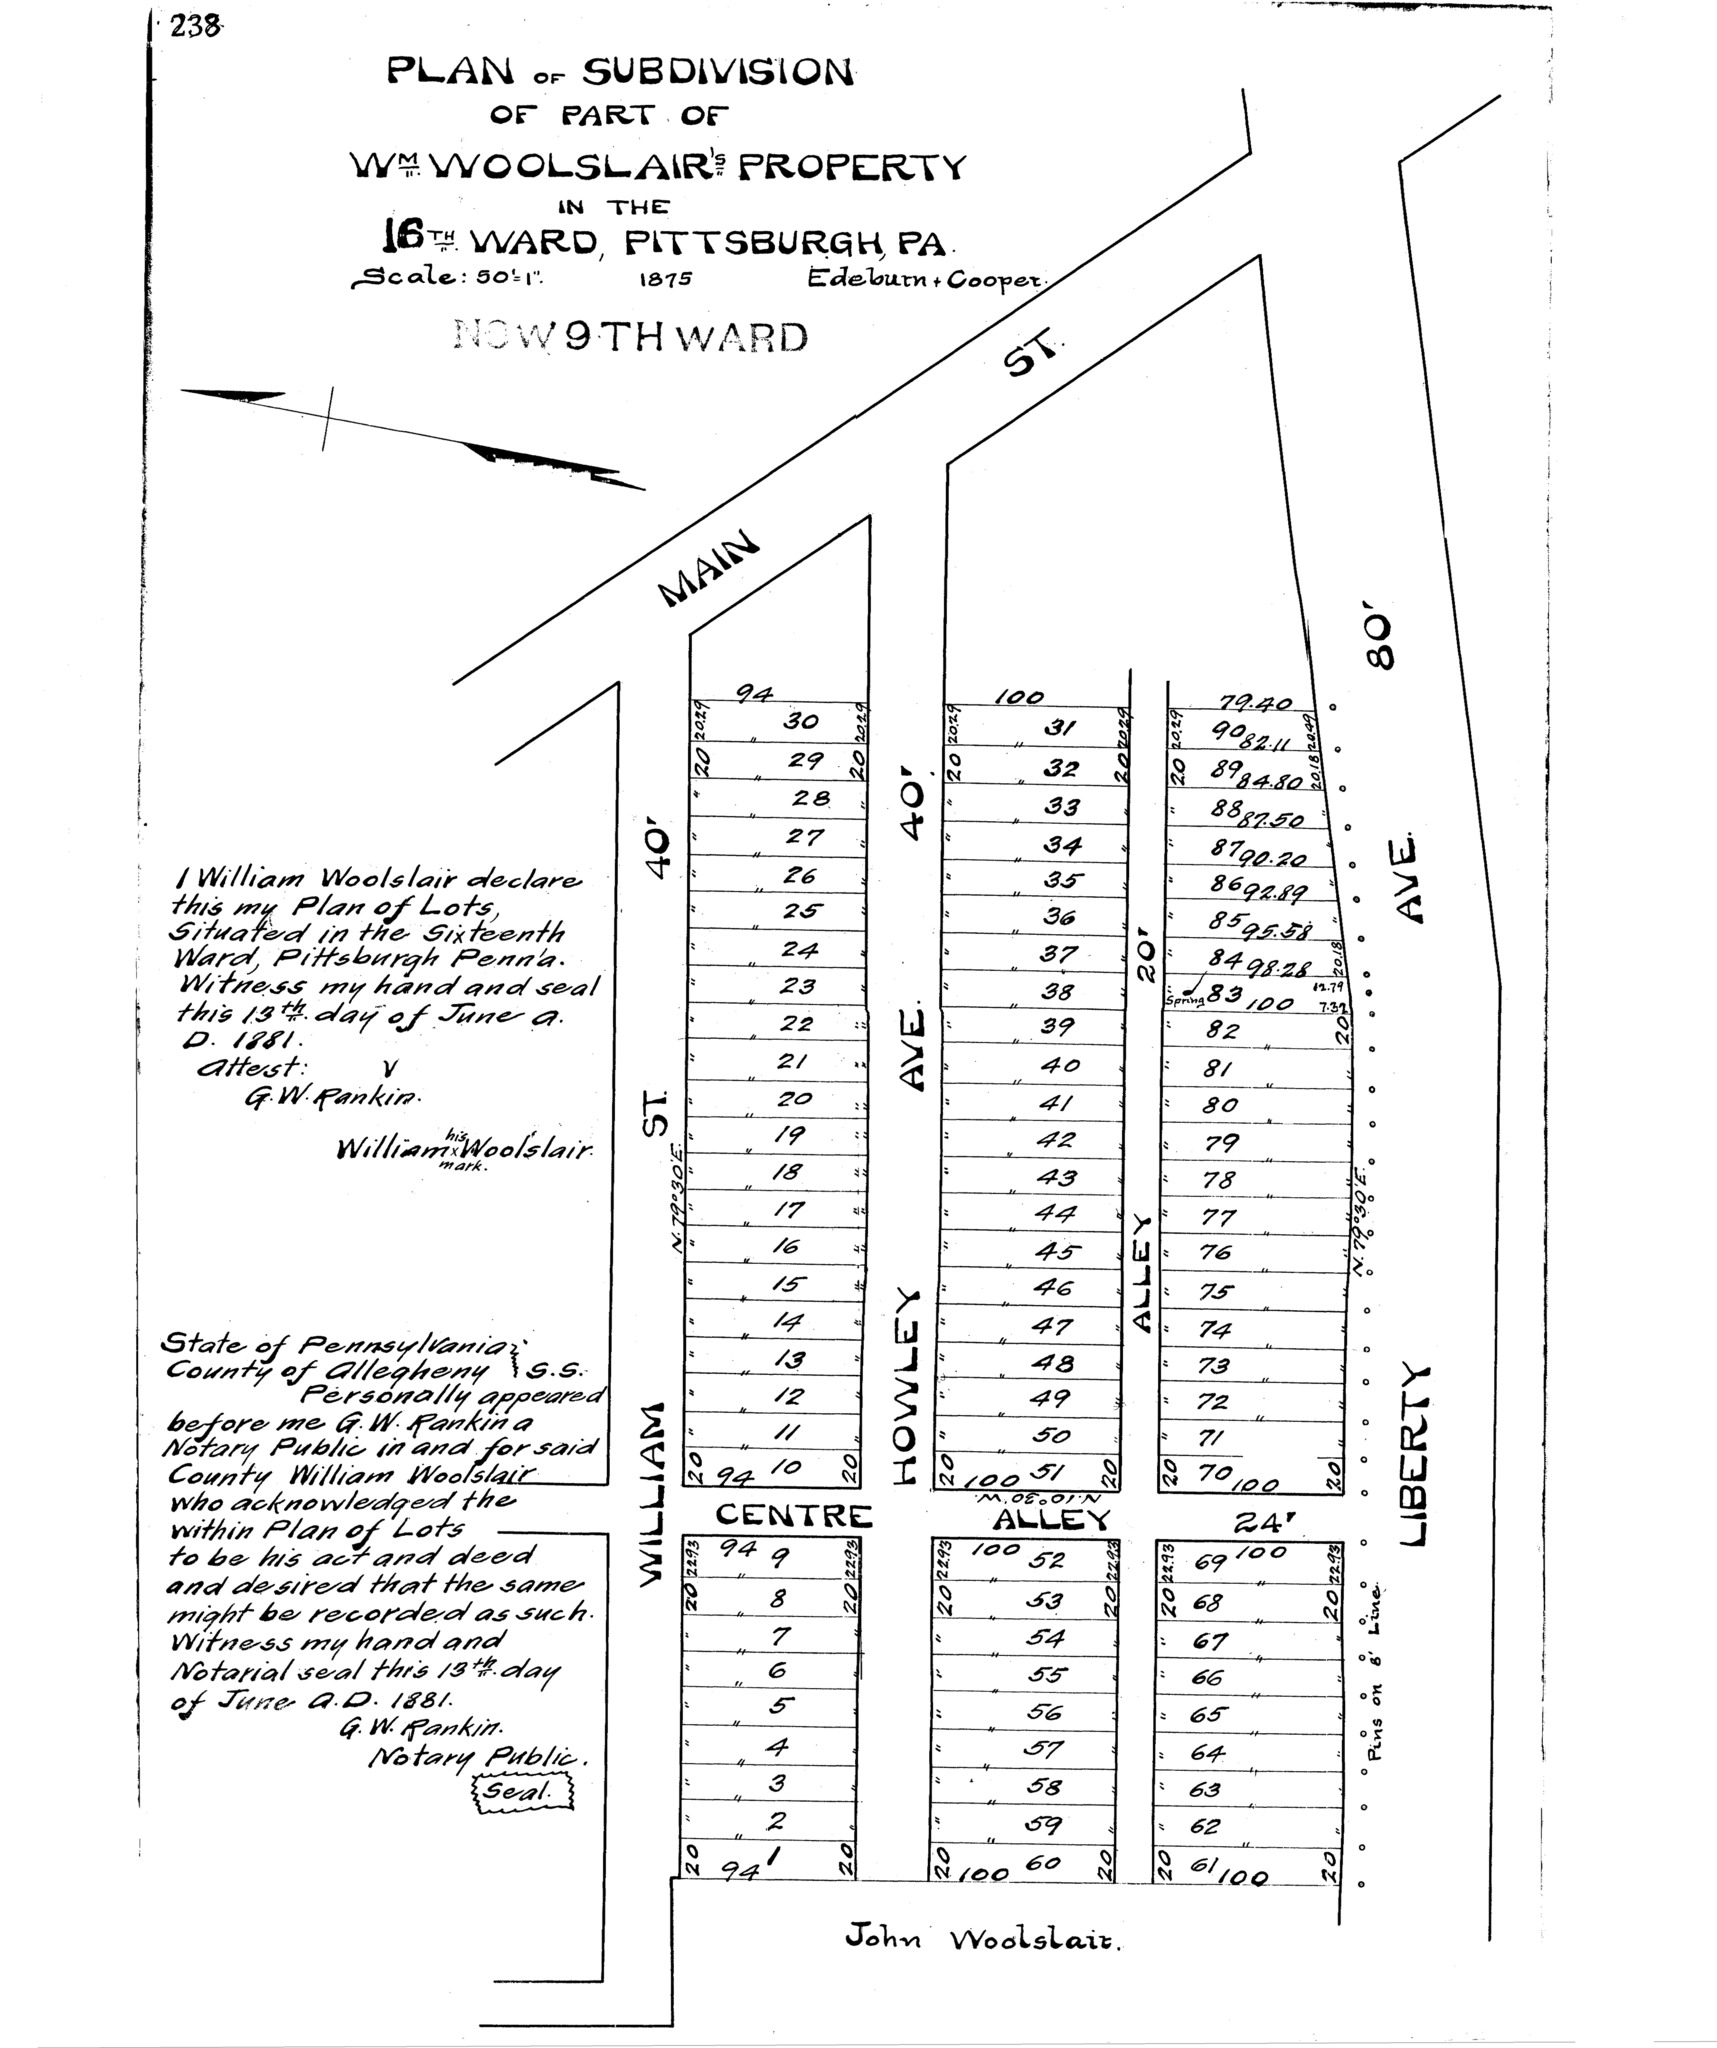 238
PLAN OF SUBDIVISION
OF PART OF
WM. WOOLSLAIR'S PROPERTY
IN THE
16TH. WARD, PITTSBURGH, PA.
Scale: 50'=1". 1875 Edeburn + Cooper.
NOW 9TH WARD
MAIN ST.
WILLIAM ST. 40'
HOWLEY AVE. 40'
ALLEY 20'
LIBERTY AVE. 80'
I William Woolslair declare
this my Plan of Lots,
Situated in the Sixteenth
Ward, Pittsburgh Penn'a.
Witness my hand and seal
this 13th. day of June A.
D. 1881.
Attest:
G. W. Rankin.
his
William x Woolslair.
mark.
State of Pennsylvania
County of Allegheny } S.S.
Personally appeared
before me G. W. Rankin a
Notary Public in and for said
County William Woolslair
who acknowledged the
within Plan of Lots
to be his act and deed
and desired that the same
might be recorded as such.
Witness my hand and
Notarial seal this 13th. day
of June A.D. 1881.
G. W. Rankin.
Notary Public.
Seal.
94 100 79.40
20.29 30 20.29 20.29 31 20.29 20.29 90 82.11 20.49
20 " 29 20 20 " 32 20 20 89 84.80 20.18
" 28 " " 33 " " 88 87.50 "
" 27 " " 34 " " 87 90.20
" 26 " " 35 " " 86 92.89 "
" 25 " " 36 " " 85 95.58 "
" 24 " " 37 " " 84 98.28 20.18
" 23 " " 38 " Spring 83 100 12.79 7.32
" 22 " " 39 " " 82 " 20
" 21 " " 40 " " 81 "
" 20 " " 41 " " 80 "
" 19 " " 42 " " 79 "
" 18 " " 43 " " 78 "
" 17 " " 44 " " 77 "
" 16 " " 45 " " 76 "
" 15 " " 46 " " 75 "
" 14 " " 47 " " 74 "
" 13 " " 48 " " 73 "
" 12 " " 49 " " 72 "
" 11 " " 50 " " 71
20 94 10 20 20 100 51 20 20 70 100 20
N. 79° 30' E.
N. 79° 30' E.
N. 10° 30' W.
CENTRE ALLEY 24'
22.93 94 9 22.93 22.93 100 52 22.93 22.93 69 100 22.93
20 " 8 20 20 " 53 20 20 68 " 20
" 7 " 54 " 67 "
" 6 " 55 " 66 "
" 5 " 56 " 65 "
" 4 " 57 " 64 "
" 3 " 58 " 63 "
" 2 " 59 " 62 "
20 94 1 20 20 100 60 20 20 61 100 20
Pins on 8' Line.
John Woolslair.